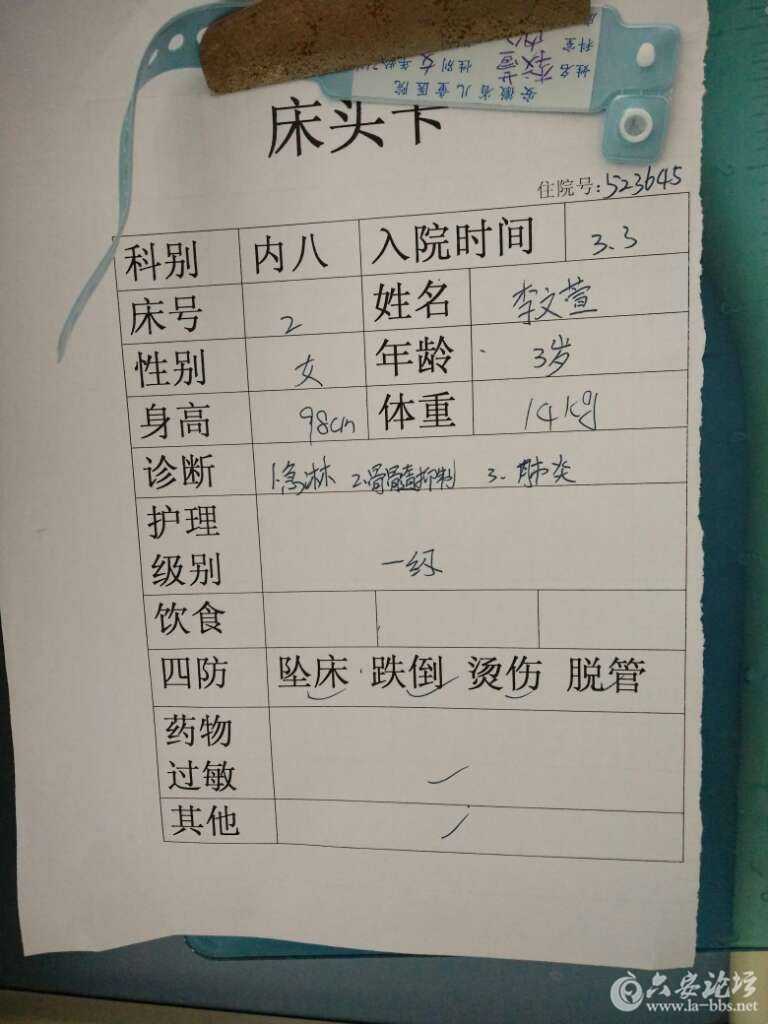 安徽省儿童医院
姓名 李文萱 性别 女 年龄
科室 内八
床头卡
住院号:523645
科别 内八 入院时间 3.3
床号 2 姓名 李文萱
性别 女 年龄 3岁
身高 98cm 体重 14kg
诊断 1.急淋 2.骨髓抑制 3.肺炎
护理
级别 一级
饮食
四防 坠床 跌倒 烫伤 脱管
药物
过敏
其他
六安论坛
www.la-bbs.net